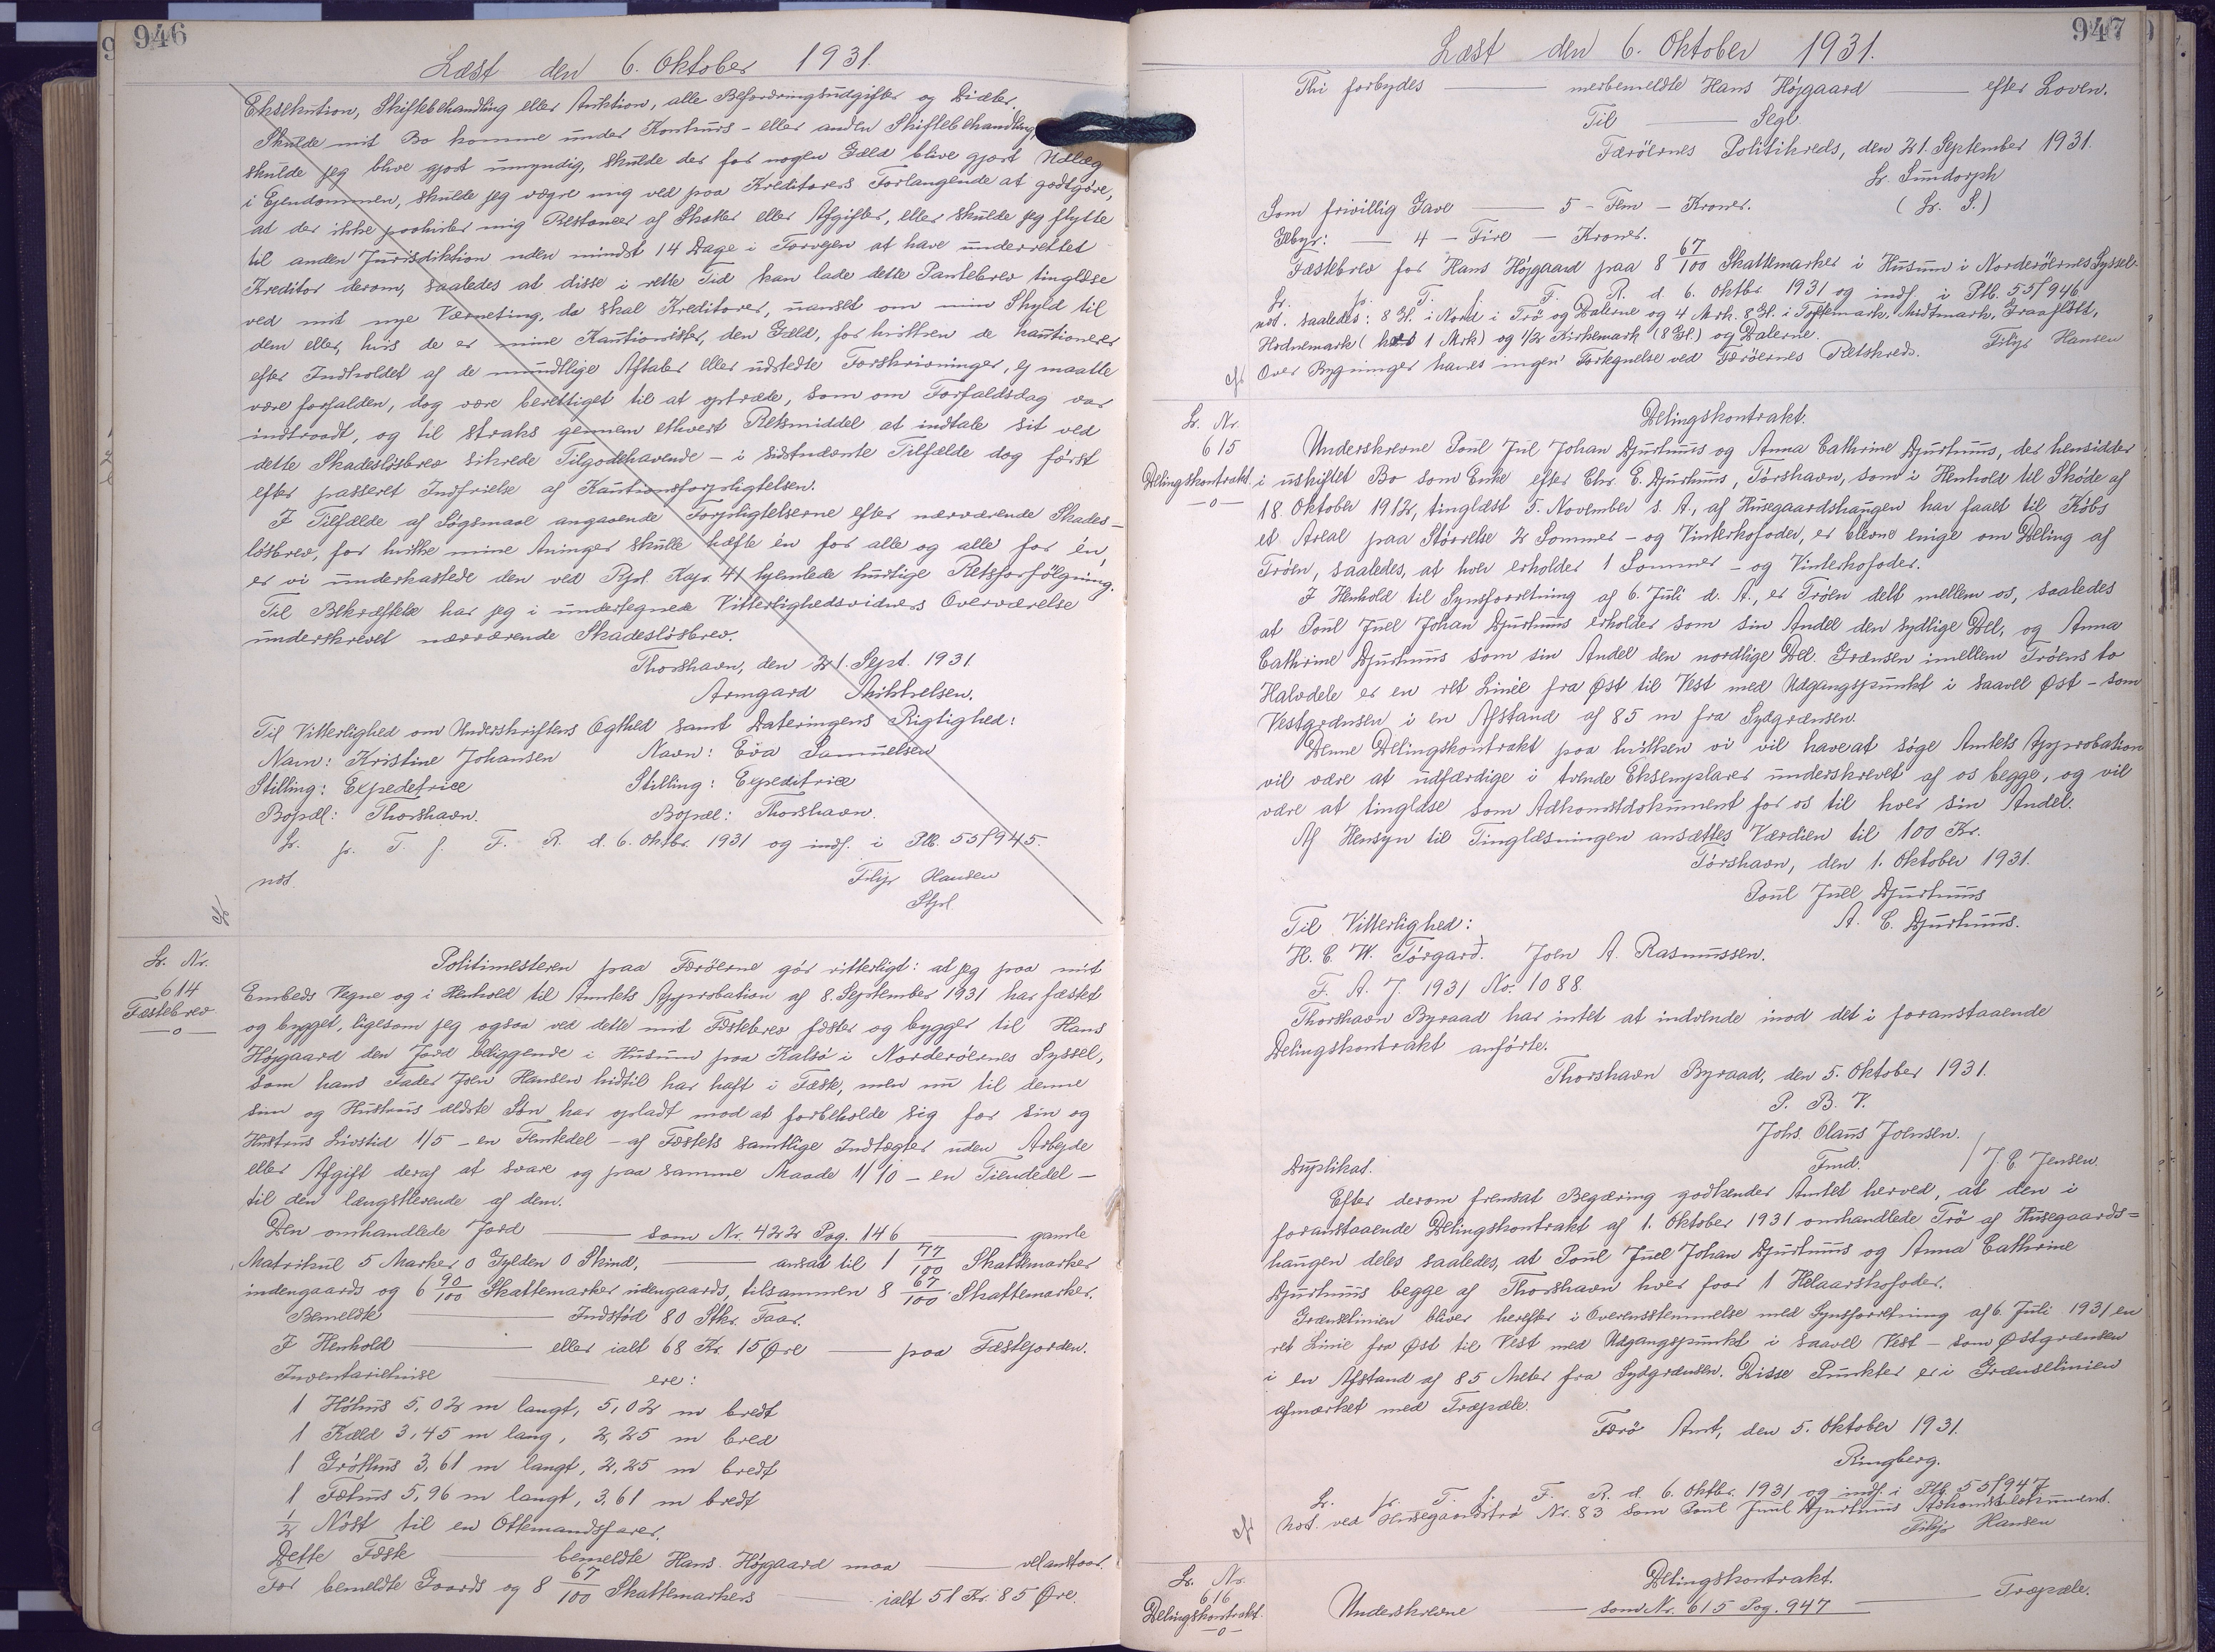 946
Læst den 6. Oktober 1931.
Eksekution, Skiftebehandling eller Auktion, alle Befordringsudgifter og Diæter.
Skulde mit Bo komme under Konkurs- eller anden Skiftebehandling,
skulde jeg blive gjort umyndig, skulde der for nogen Gæld blive gjort Udlæg
i Ejendommen, skulde jeg vægre mig ved paa Kreditorers Forlangende at godtgøre,
at der ikke paahviler mig Restancer af Skatter eller Afgifter, eller skulde jeg flytte
til anden Jurisdiktion uden mindst 14 Dage i Forvejen at have underrettet
Kreditor derom, saaledes at disse i rette Tid kan lade dette Pantebrev tinglæse
ved mit nye Værneting, da skal Kreditorer, uanset om min Skyld til
dem eller, hvis de er mine Kautionister, den Gæld, for hvilken de kautionerer
efter Indholdet af de mundtlige Aftaler eller udstedte Forskrivninger, ej maatte
være forfalden, dog være berettiget til at optræde, som om Forfaldsdag var
indtraadt, og til straks gennem ethvert Retsmiddel at indtale sit ved
dette Skadesløsbrev sikrede Tilgodehavende - i sidstnævnte Tilfælde dog først
efter passeret Indfrielse af Kautionsforpligtelsen.
I Tilfælde af Søgsmaal angaaende Forpligtelserne efter nærværende Skades-
løsbrev, for hvilke mine Arvinger skulle hæfte én for alle og alle for én,
er vi underkastede den ved Rpl. Kap. 41 hjemlede hurtige Retsforfølgning.
Til Bekræftelse har jeg i undertegnede Vitterlighedsvidners Overværelse
underskrevet nærværende Skadesløsbrev.
Thorshavn, den 21. Sept. 1931.
Armgard Mikkelsen.
Til Vitterlighed om Underskriftens Ægthed samt Dateringens Rigtighed:
Navn: Kristine Johansen Navn: Eva Samuelsen
Stilling: Expedetrice Stilling: Expeditrice
Bopæl: Thorshavn. Bopæl: Thorshavn.
L. p. T. f. F. R. d. 6. Oktbr. 1931 og indf. i Ptb. 55/945.
not. Filip Hansen
Stpl.
L. Nr.
614
Fæstebrev
—o—
Politimesteren paa Færøerne gør vitterligt: at jeg paa mit
Embeds Vegne og i Henhold til Amtets Approbation af 8. September 1931 har fæstet
og bygget, ligesom jeg ogsaa ved dette mit Fæstebrev fæster og bygger til Hans
Højgaard den Jord beliggende i Husum paa Kalsø i Norderøernes Syssel,
som hans Fader Joen Hansen hidtil har haft i Fæste, men nu til denne
sin og Hustrus ældste Søn har opladt mod at forbeholde sig for sin og
Hustrus Livstid 1/5 - en Femtedel - af Fæstets samtlige Indtægter uden Arbejde
eller Afgift deraf at svare og paa samme Maade 1/10 - en Tiendedel -
til den længstlevende af dem.
Den omhandlede Jord — som Nr. 422 Pag. 146 — gamle
Matrikul 5 Marker 0 Gylden 0 Skind, — ansat til 1 77/100 Skattemarker
indengaards og 6 90/100 Skattemarker udengaards, tilsammen 8 67/100 Skattemarker.
Bemeldte — Indstød 80 Stkr. Faar.
I Henhold — eller ialt 68 Kr. 15 Øre — paa Fæstejorden.
Inventariehuse — ere:
1 Høhus 5,02 m langt, 5,02 m bredt
1 Kæld 3,45 m lang, 2,25 m bred
1 Gróthus 3,61 m langt, 2,25 m bredt
1 Fæhus 5,96 m langt, 3,61 m bredt
1/2 Nøst til en Ottemandsfarer.
Dette Fæste — bemeldte Hans Højgaard maa — velanstaar.
For bemeldte Gaards og 8 67/100 Skattemarkers — ialt 51 Kr. 85 Øre.
947
Læst den 6. Oktober 1931.
Thi forbydes — merbemeldte Hans Højgaard — efter Loven.
Til — Segl.
Færøernes Politikreds, den 21. September 1931.
L. Sundorph
(L. S.)
Som frivillig Gave — 5 - Fem - Kroner.
Gebyr: — 4 - Fire - Kroner.
Fæstebrev for Hans Højgaard paa 8 67/100 Skattemarker i Husum i Norderøernes Syssel.
L. p. T. f. F. R. d. 6. Oktbr. 1931 og indf. i Ptb. 55/946
not. saaledes: 8 Gl. i Nord i Trø og Dalerne og 4 Mrk. 8 Gl. i Toftemark, Midtmark, Graafløtt,
Hodnemark (hver 1 Mrk) og 1/2 Kirkemark (8 Gl.) og Dalerne.
Over Bygninger haves ingen Fortegnelse ved Færøernes Retskreds. Filip Hansen
L. Nr.
615
Delingskontrakt
—o—
Delingskontrakt.
Underskrevne Poul Jul Johan Djurhuus og Anna Cathrine Djurhuus, der hensidder
i uskiftet Bo som Enke efter Chr. E. Djurhuus, Tórshavn, som i Henhold til Skøde af
18. Oktober 1912, tinglæst 5. November s. A., af Húsegaardshaugen har faaet til Købs
et Areal paa Størrelse 2 Sommer- og Vinterkofoder, er blevne enige om Deling af
Trøen, saaledes, at hver erholder 1 Sommer- og Vinterkofoder.
I Henhold til Synsforretning af 6. Juli d. A., er Trøen delt mellem os, saaledes
at Poul Juel Johan Djurhuus erholder som sin Andel den sydlige Del, og Anna
Cathrine Djurhuus som sin Andel den nordlige Del. Grænsen imellem Trøens to
Halvdele er en ret Linie fra Øst til Vest med Udgangspunkt i saavel Øst- som
Vestgrænsen i en Afstand af 85 m fra Sydgrænsen.
Denne Delingskontrakt paa hvilken vi vil have at søge Amtets Approbation
vil være at udfærdige i tvende Eksemplarer underskrevet af os begge, og vil
være at tinglæse som Adkomstdokument for os til hver sin Andel.
Af Hensyn til Tinglæsningen ansættes Værdien til 100 Kr.
Tórshavn, den 1. Oktober 1931.
Poul Juel Djurhuus
A. C. Djurhuus.
Til Vitterlighed:
H. C. W. Tórgarð. Joen A. Rasmussen.
F. A. J. 1931 No. 1088.
Thorshavn Byraad har intet at indvende imod det i foranstaaende
Delingskontrakt anførte.
Thorshavn Byraad, den 5. Oktober 1931.
P. B. V.
Johs. Olaus Joensen.
Fmd. / J. C. Jensen.
Duplikat.
Efter derom fremsat Begæring godkender Amtet herved, at den i
foranstaaende Delingskontrakt af 1. Oktober 1931 omhandlede Trø af Husegaards=
haugen deles saaledes, at Poul Juel Johan Djurhuus og Anna Cathrine
Djurhuus begge af Thorshavn hver faar 1 Helaarskofoder.
Grænselinien bliver herefter i Overensstemmelse med Synsforretning af 6. Juli 1931 en
ret Linie fra Øst til Vest med Udgangspunkt i saavel Vest- som Østgrænsen
i en Afstand af 85 Meter fra Sydgrænsen. Disse Punkter er i Grænselinien
afmærket med Træpæle.
Færø Amt, den 5. Oktober 1931.
Ringberg.
L. p. T. f. F. R. d. 6. Oktbr. 1931 og indf. i Ptb. 55/947
Not. ved Husegaardstrø Nr. 83 som Poul Juul Djurhuus Adkomstdokument.
Filip Hansen
L. Nr.
616
Delingskontrakt.
—o—
Delingskontrakt.
Underskrevne — som Nr. 615 Pag. 947 — Træpæle.